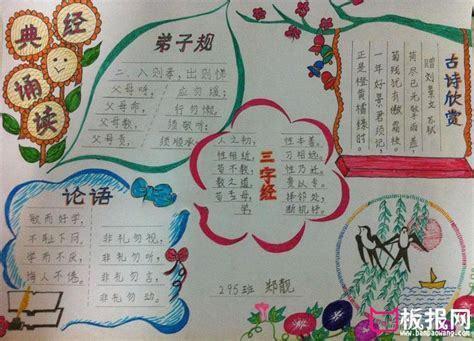 经典诵读
弟子规
二、入则孝,出则悌
父母呼, 应勿缓;
父母命, 行勿懒。
父母教, 须敬听;
父母责, 须顺承。
古诗欣赏
赠刘景文 苏轼
荷尽已无擎雨盖,
菊残犹有傲霜枝。
一年好景君须记,
正是橙黄橘绿时。
三字经
人之初, 性本善。
性相近, 习相远。
苟不教, 性乃迁。
教之道, 贵以专。
昔孟母, 择邻处,
子不学, 断机杼。
论语
敏而好学,
不耻下问。
学而不厌,
诲人不倦。
非礼勿视,
非礼勿听,
非礼勿言,
非礼勿动。
295班 郑靓
板报网
www.banbaowang.com